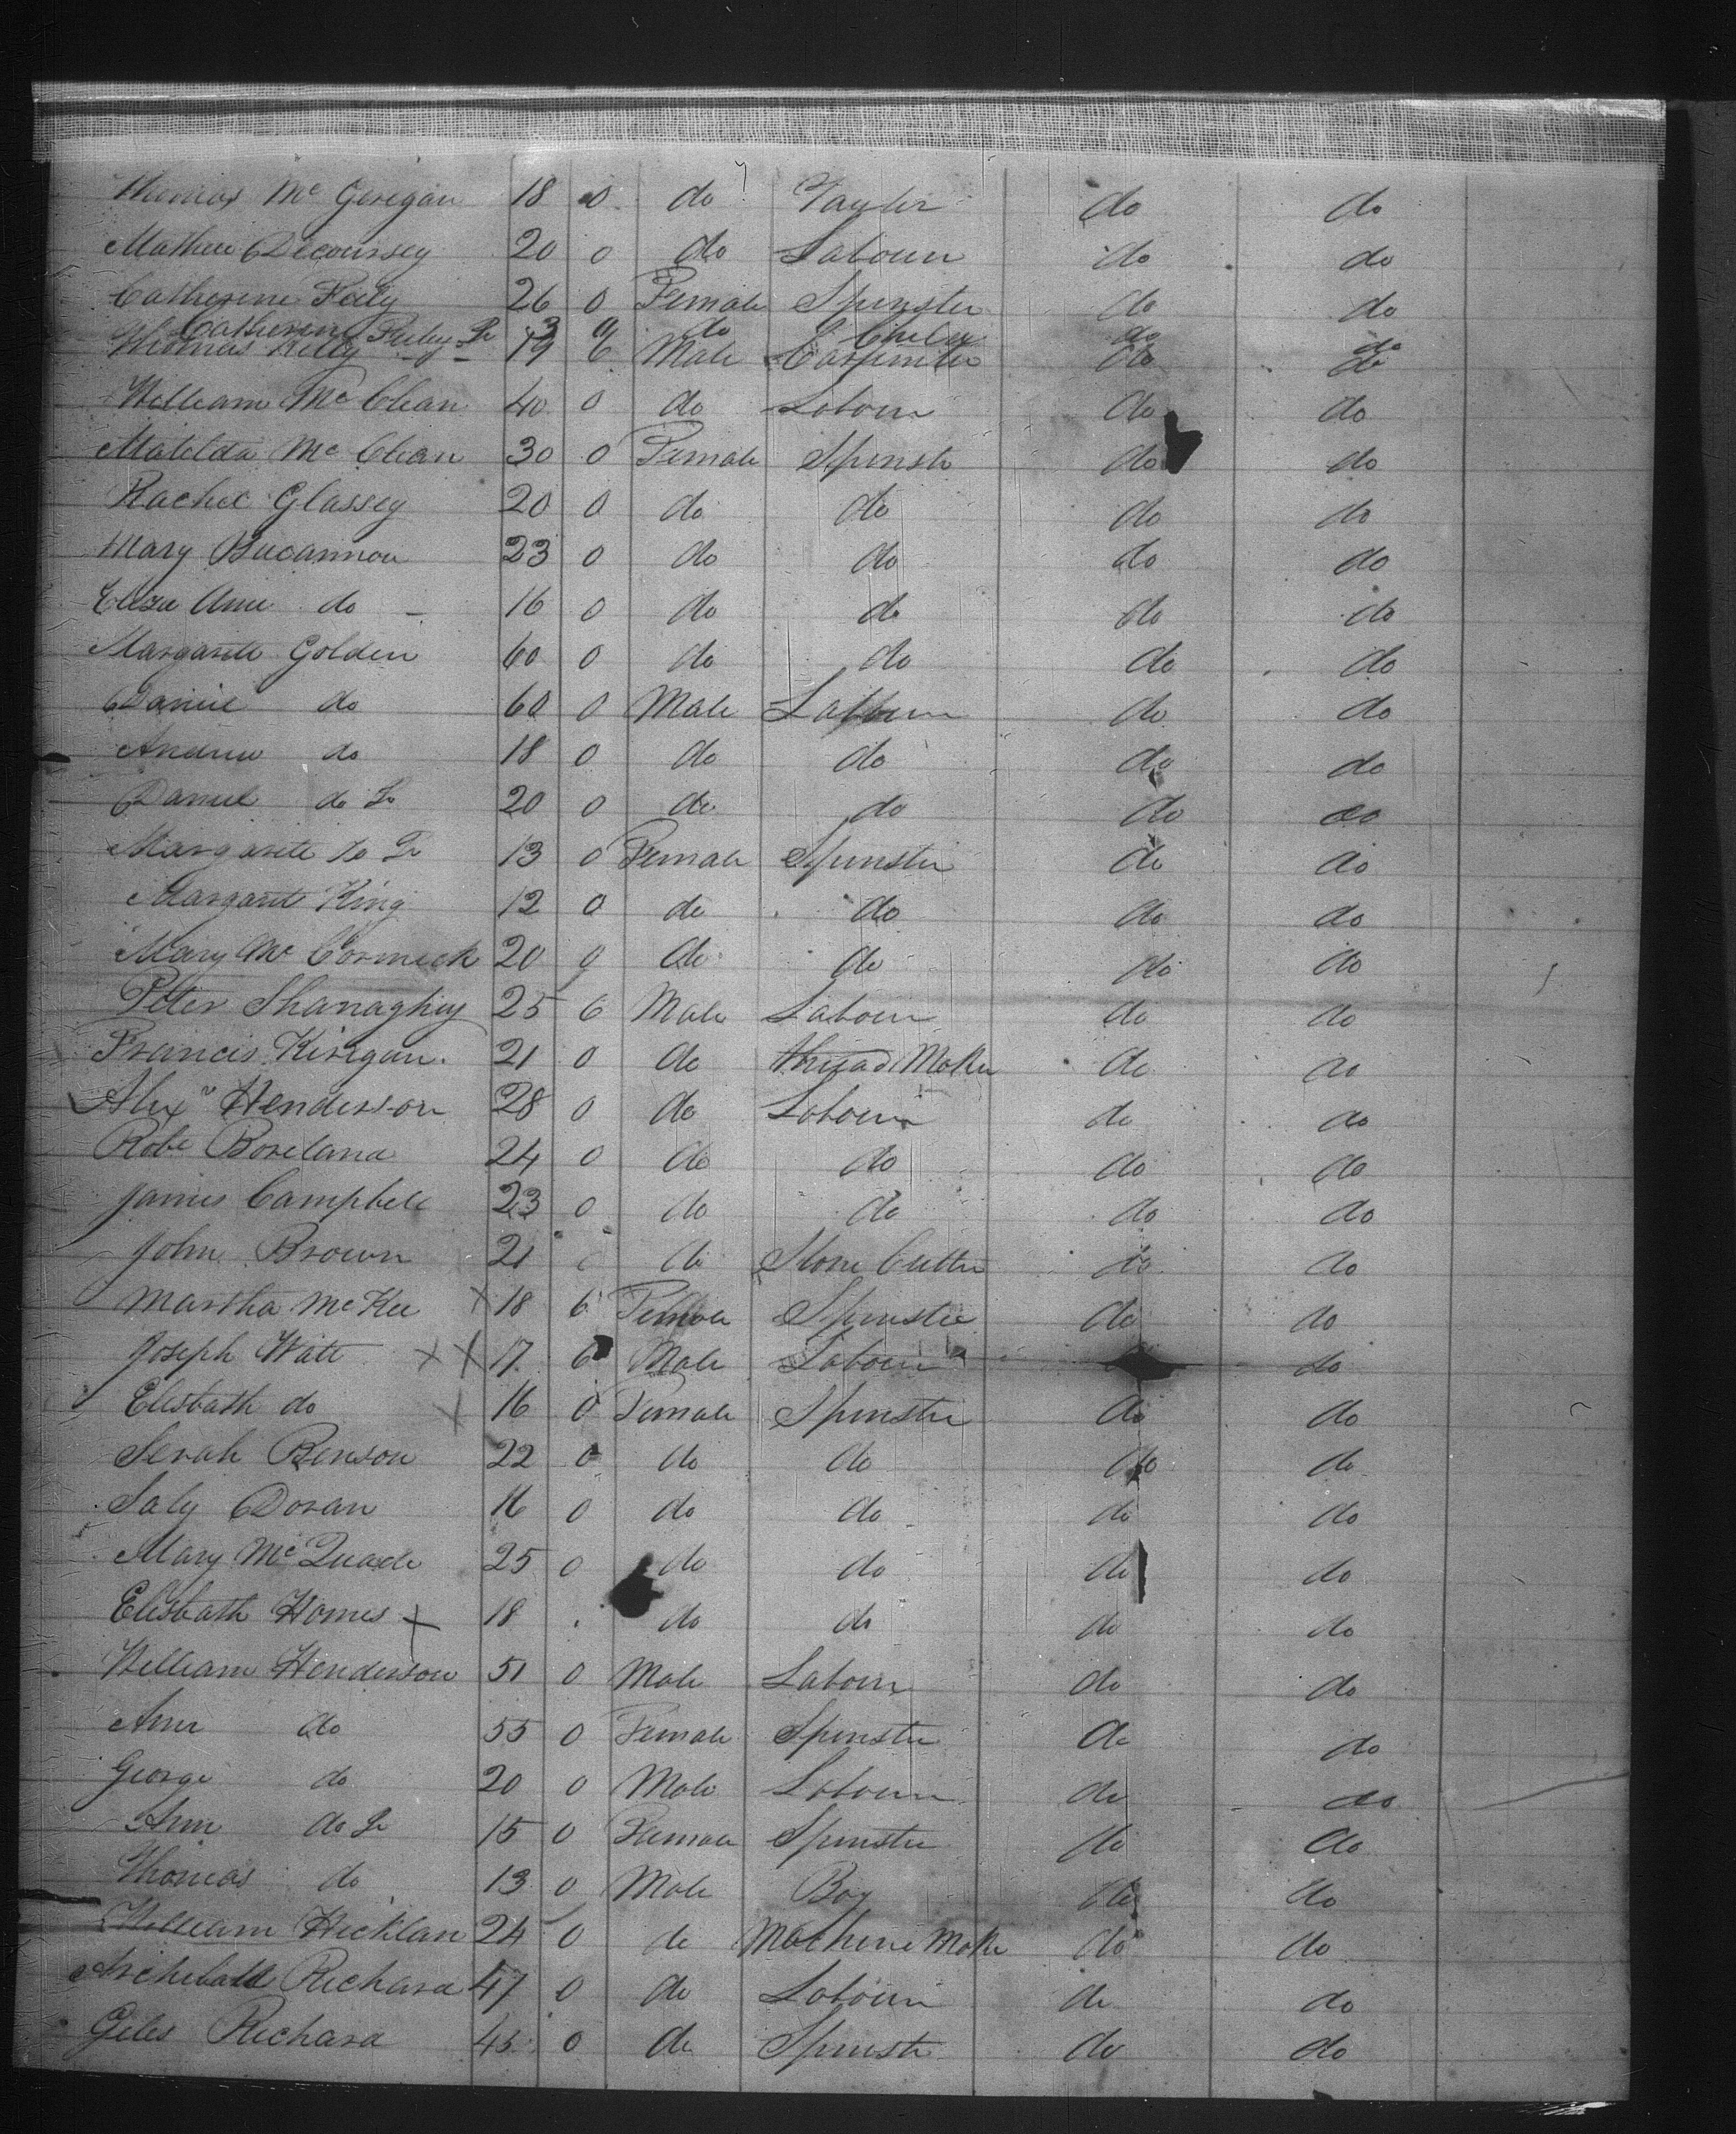 Thomas Mc Gerigan 18 0 do Tayler do do
Mathew Decoursey 20 0 do Labour do do
Catherine Reily 26 0 Female Spinster do do
Catherine Reiley Jr 3 0 do Child do do
Thomas Kelly 19 0 Male Carpenter do do
William Mc Clean 40 0 do Labour do do
Matilda Mc Clean 30 0 Female Spinste do do
Rachel Glassey 20 0 do do do do
Mary Bucannon 23 0 do do do do
Eliza Ann do 16 0 do do do do
Margarett Golden 60 0 do do do do
Daniel do 60 0 Male Labour do do
Andrew do 18 0 do do do do
Daniel do Jr 20 0 do do do do
Margarett do Jr 13 0 Female Spinster do do
Margarett King 12 0 do do do do
Mary Mc Cormick 20 0 do do do do
Peter Shanaghey 25 0 Male Labour do do
Francis Kirigan 21 0 do thread Make do do
Alexr Henderson 28 0 do Labour do do
Robt Boreland 24 0 do do do do
James Campbell 23 0 do do do do
John Brown 21 do Stone Cutter do do
Martha Mc Kee X 18 0 Female Spinster do do
Joseph Watt X X 17 0 Male Labour do
Elisbath do X 16 0 Female Spinster do do
Serah Benson 22 0 do do do do
Saly Doran 16 0 do do do do
Mary Mc Quade 25 0 do do do do
Elisbath Homes X 18 do do do do
William Henderson 51 0 Male Labour do do
Ann do 55 0 Female Spinster do do
George do 20 0 Male Labour do do
Ann do Jr 15 0 Female Spinster do do
Thomas do 13 0 Male Boy do do
William Hicklan 24 0 do Mathine Make do do
Archibald Richard 47 0 do Labour do do
Giles Richard 45 0 do Spinste do do